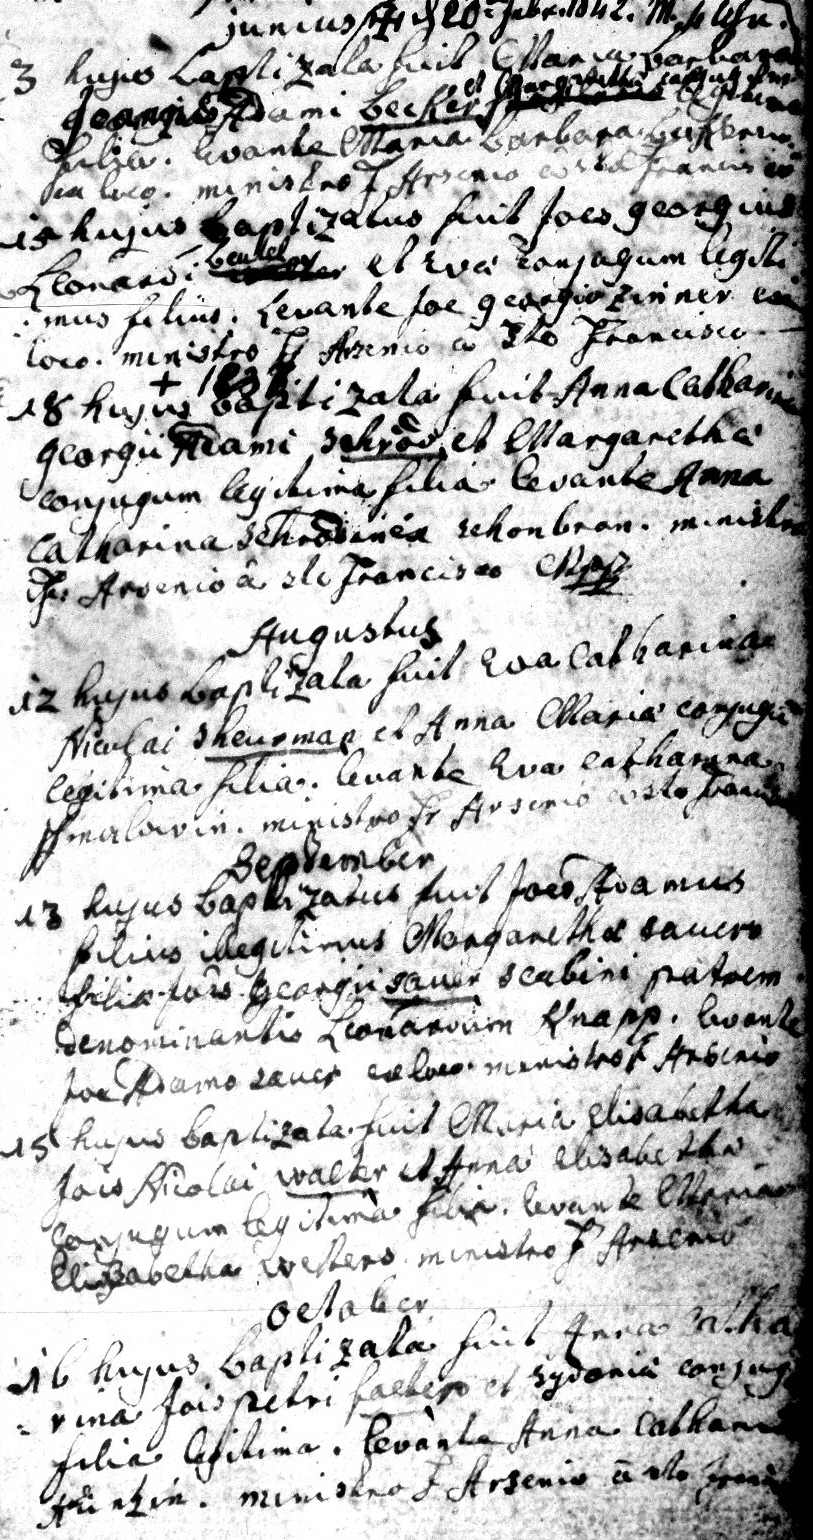 junius
3 hujus baptizata fuit Maria barbara
georgii Adami becker et Margaretha
filia. levante Maria barbara
ex loco. ministro F Arsenio a sto Francisco
15 hujus baptizatus fuit Joes georgius
Leonardi et Eva conjugum legiti
mus filius. levante Joe georgio zinner ex
loco. ministro F Arsenio a Sto Francisco
18 hujus baptizata fuit Anna Catharina
georgii Adami schröd et Margaretha
conjugum legitima filia levante Anna
Catharina schrodinea schonbron. ministro
Fr Arsenio a sto Francisco
Augustus
12 hujus baptizata fuit Eva Catharina
Nicolai sheurman et Anna Maria conjugu
legitima filia. levante Eva catharina
ministro Fr Arsenio a sto Francis
September
13 hujus baptizatus fuit Joes Adamus
filius illegitimus Margaretha sauers
filia Jois Georgii sauer scabini patrem
denominantis Leonardum Knapp. levante
Joe Adamo sauer ex loco ministro F Arsenio
15 hujus baptizata fuit Maria Elisabetha
Jois Nicolai walter et Anna Elisabetha
conjugum legitima filia. levante Maria
Elizabetha westers ministro F Arsenio
October
16 hujus baptizata fuit Anna Catha
rina Jois petri et sydonia conjugu
filia legitima. levante Anna Catharin
ministro F Arsenio a sto Franc